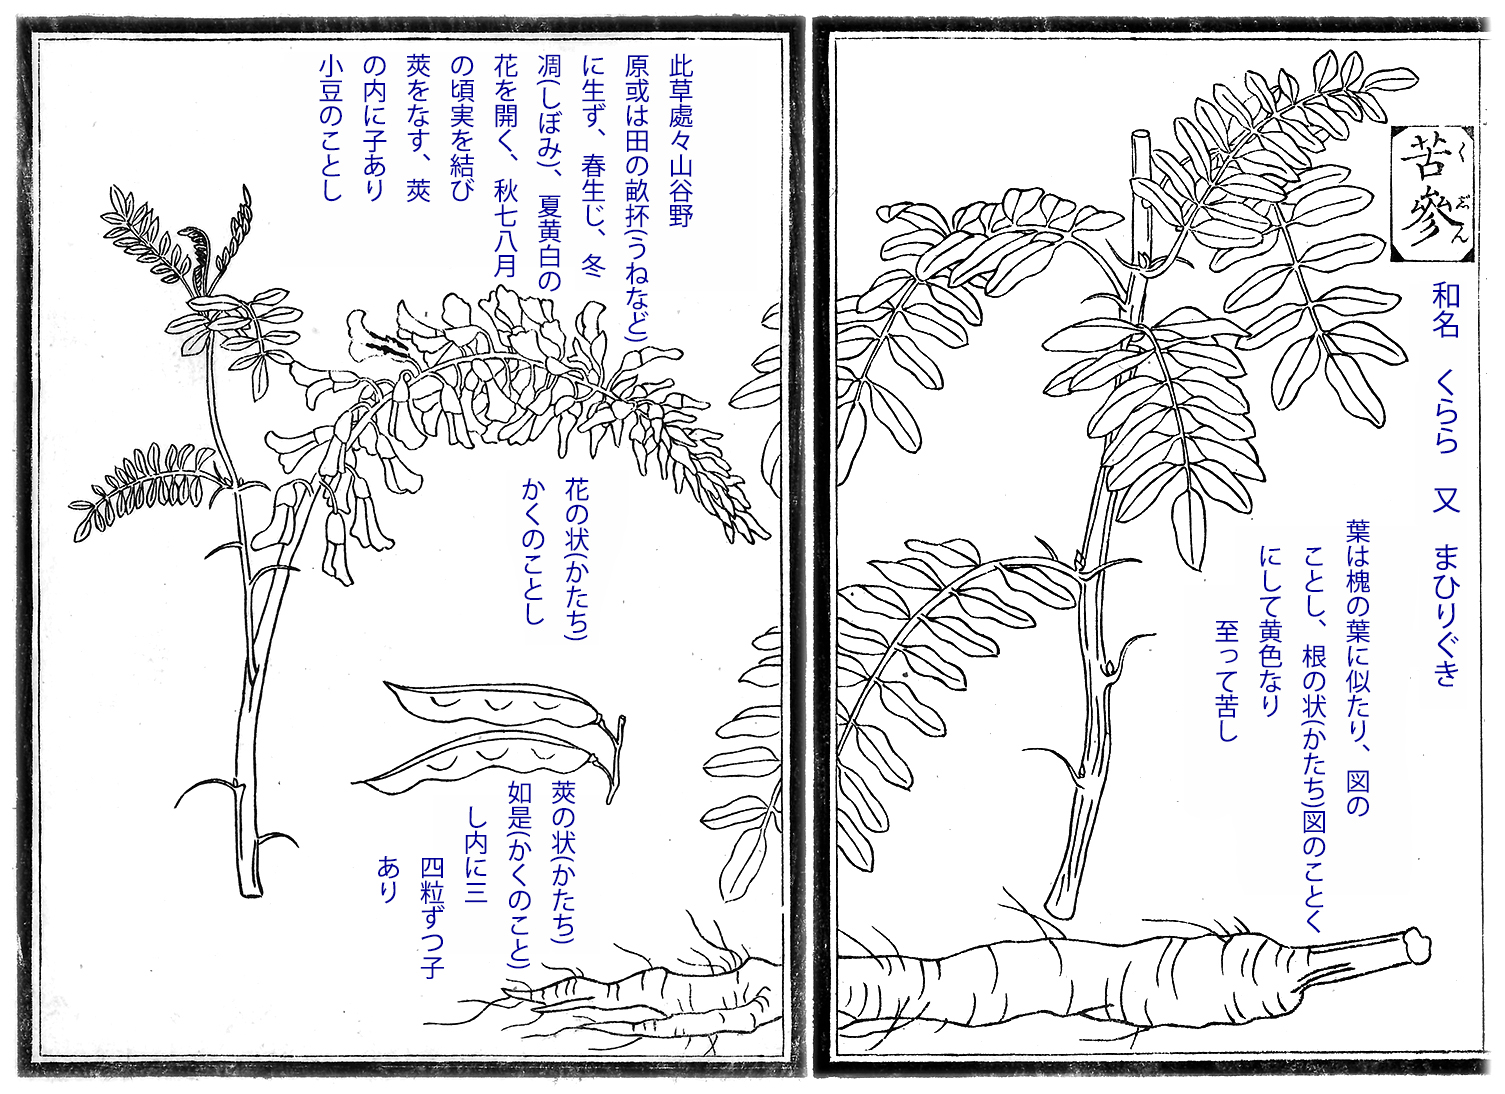 苦參
くじん
和名　くらら　又　まひりぐき
葉は槐の葉に似たり、図の
ことし、根の状(かたち)図のことく
にして黄色なり
至って苦し
此草處々山谷野
原或は田の畝抔(うねなど)
に生ず、春生じ、冬
凋(しぼみ)、夏黄白の
花を開く、秋七八月
の頃実を結び
莢をなす、莢
の内に子あり
小豆のことし
花の状(かたち)
かくのことし
莢の状(かたち)
如是(かくのこと)
し内に三
四粒ずつ子
あり